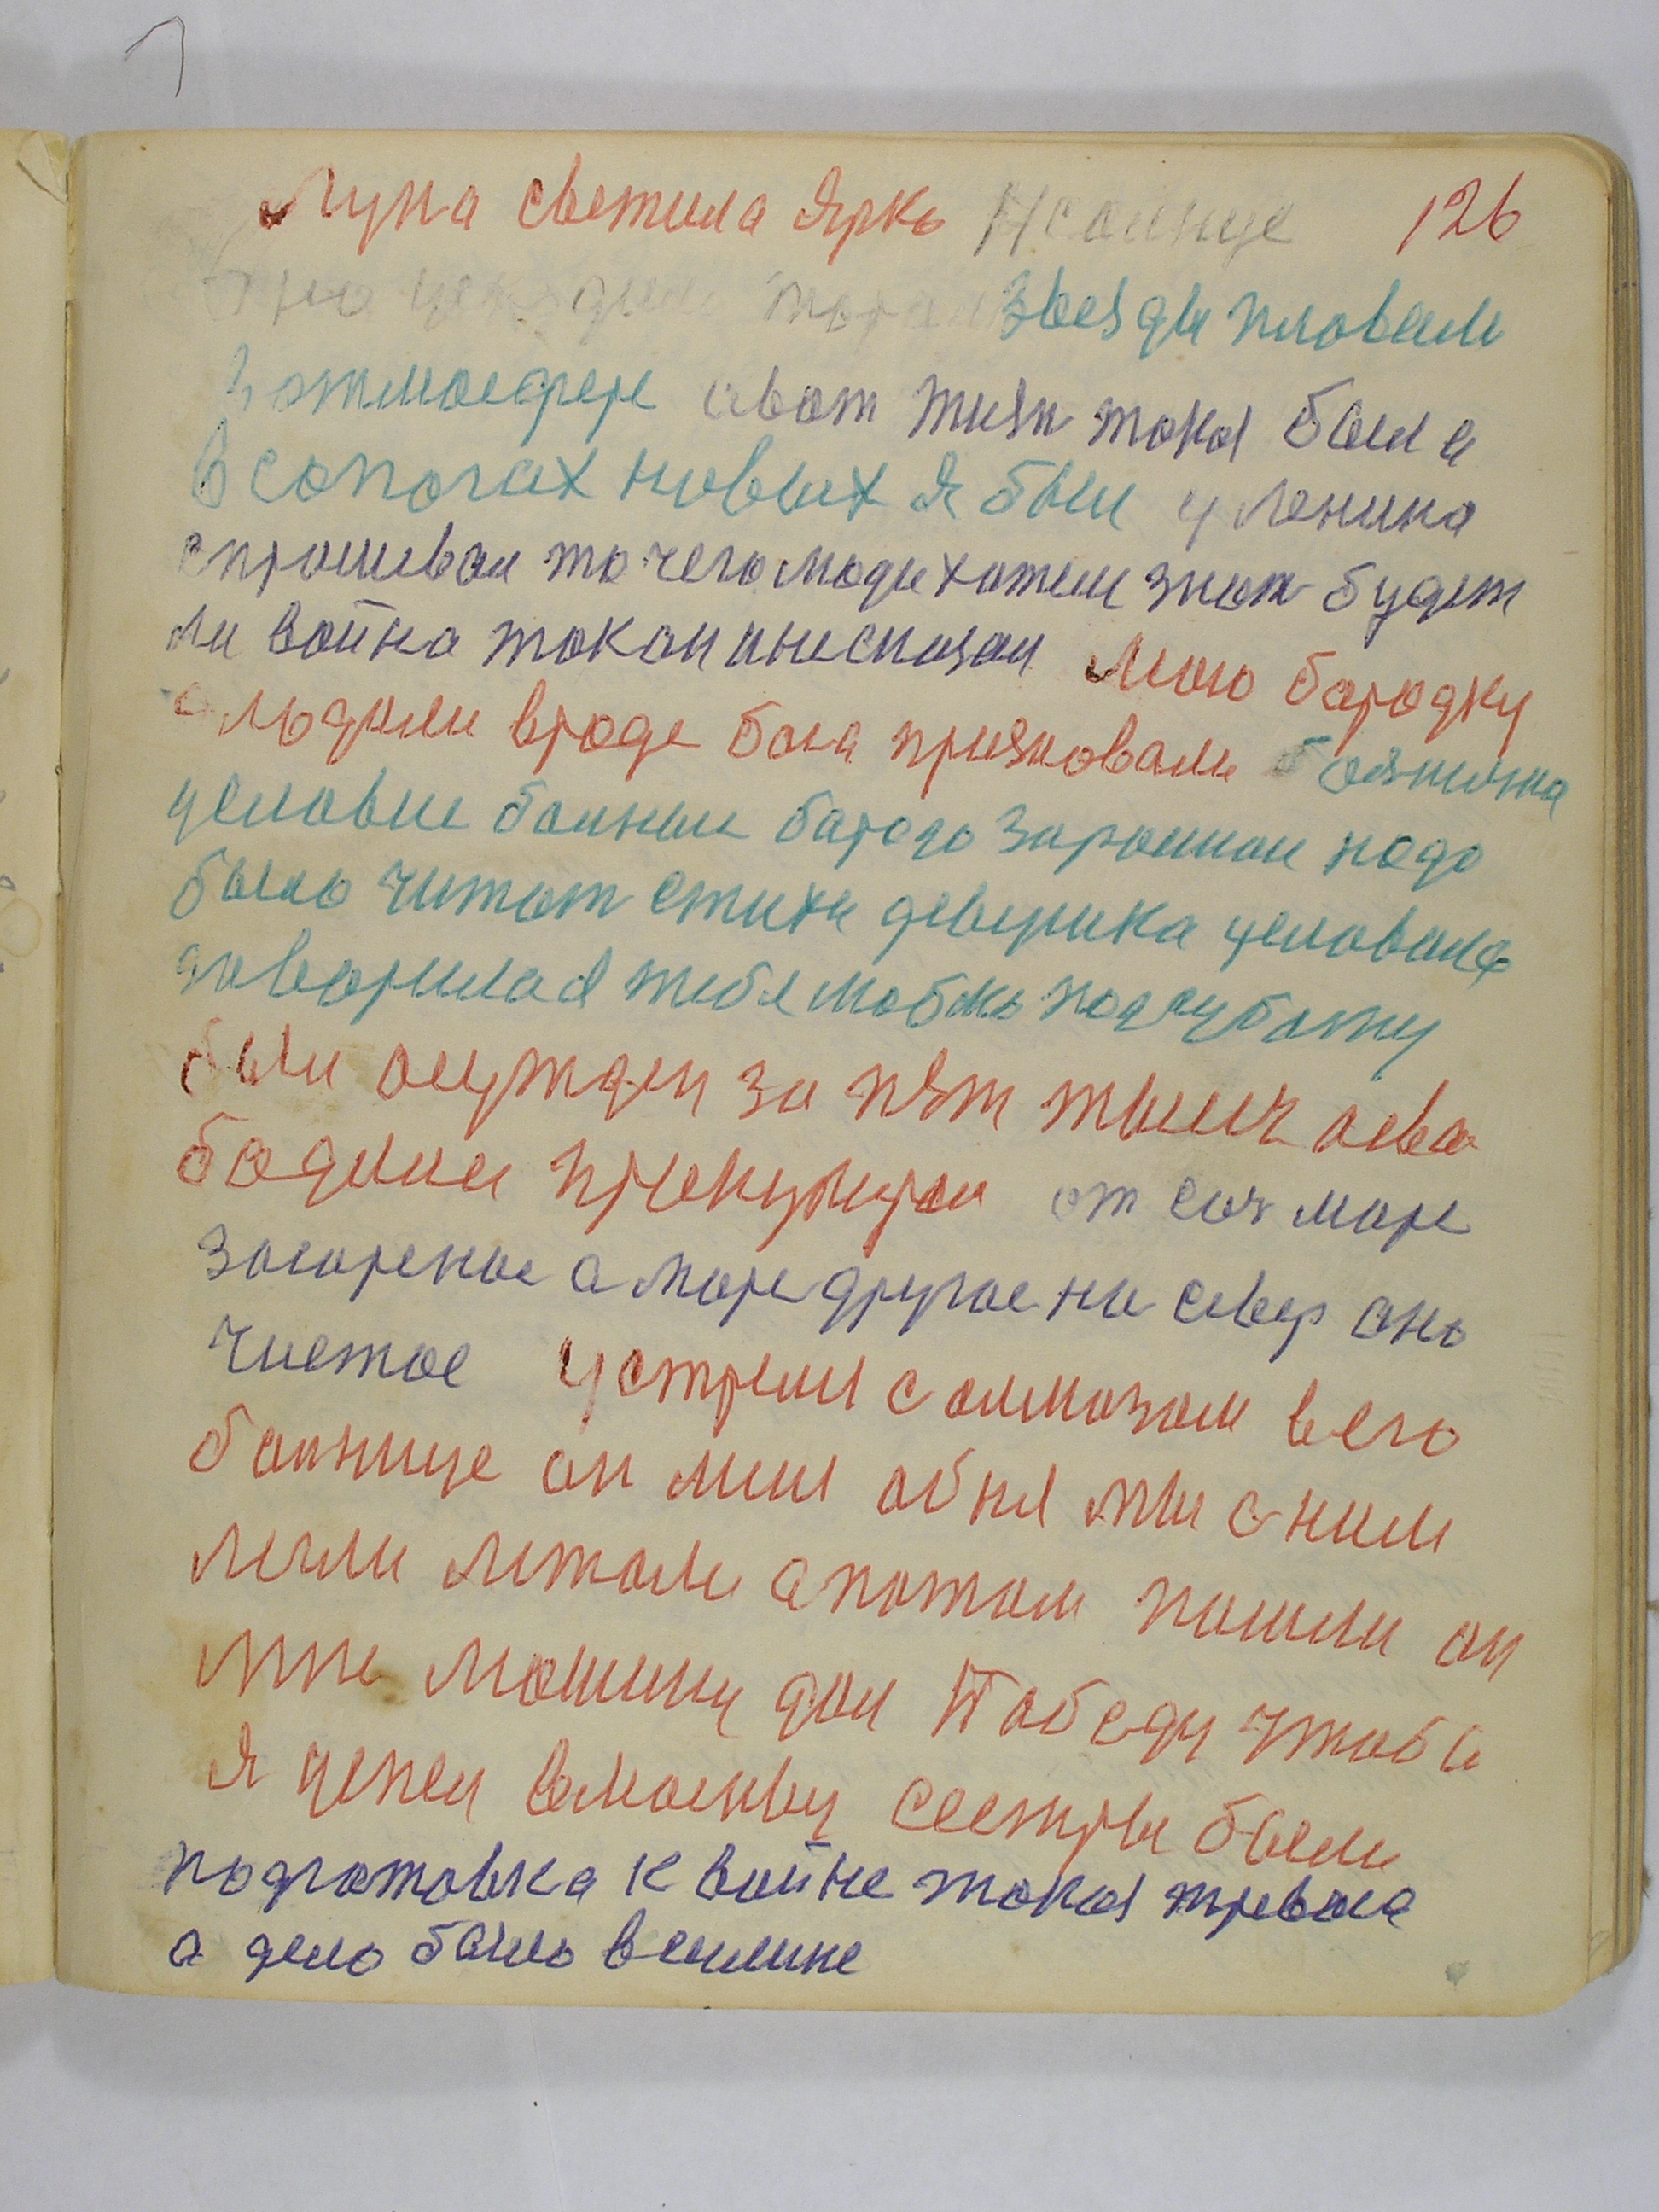 Луна светила ярко И солнце 126
звезды пловали
в отмосфере авот жизн токая была
в сопогах новых я был у Ленина
спрошивал то чего люди хотели знат будет
ли война токои инесказал мою бародку
а людоми вроде бога признавали
целовие болные бародо зарошиои надо
было читат стихи девушка целовала
говорила я тибя люблю подгубаmу
был осужден за пят тысеч асва
бодили от сол море
загореное а море другое на север оно
чистое устреил с олмазом в его
болнице он миня обнял мы с ним
легли летали а потом пошли он
мне мошину дал Победу чтобы
я уехал вмоскву сестры были
подготовка к войне токая тревога
а дело было